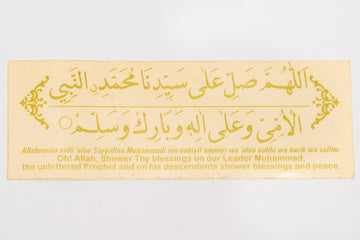 اَللّٰهُمَّ صَلِّ عَلٰى سَيِّدِنَا مُحَمَّدِنِ النَّبِيِّ
الْاُمِّيِّ وَعَلٰى اٰلِهٖ وَبَارِكْ وَسَلِّمْ
Allahumma salli 'alaa Sayyidina Muhammadi nin nabiyil ummiyi wa 'alaa aalihi wa barik wa sallim.
Oh! Allah, Shower Thy blessings on our Leader Muhammad,
the unlettered Prophet and on his descendents shower blessings and peace.